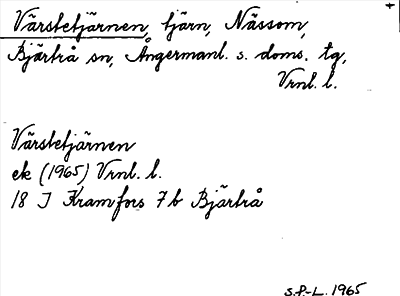 Värstetjärnen, tjärn, Nässom,
Bjärtrå sn, Ångermanl. s. doms. tg,
Vrnl. l.
Värstetjärnen
ek (1965) Vrnl. l.
18 J Kramfors 7 b Bjärtrå
S.P.-L. 1965